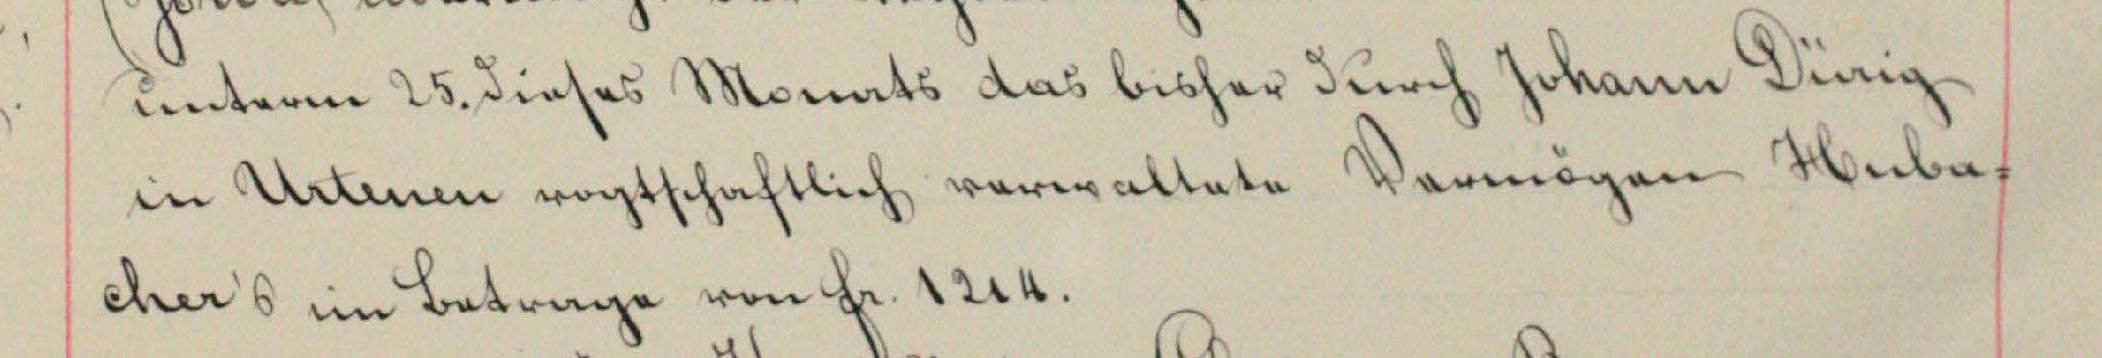 unterm 25. dieses Monats das bisher durch Johann Dürig
in Urtenen vogtschaftlich verwaltete Vermögen Huba-
cher's im Betrage von Fr. 1214.